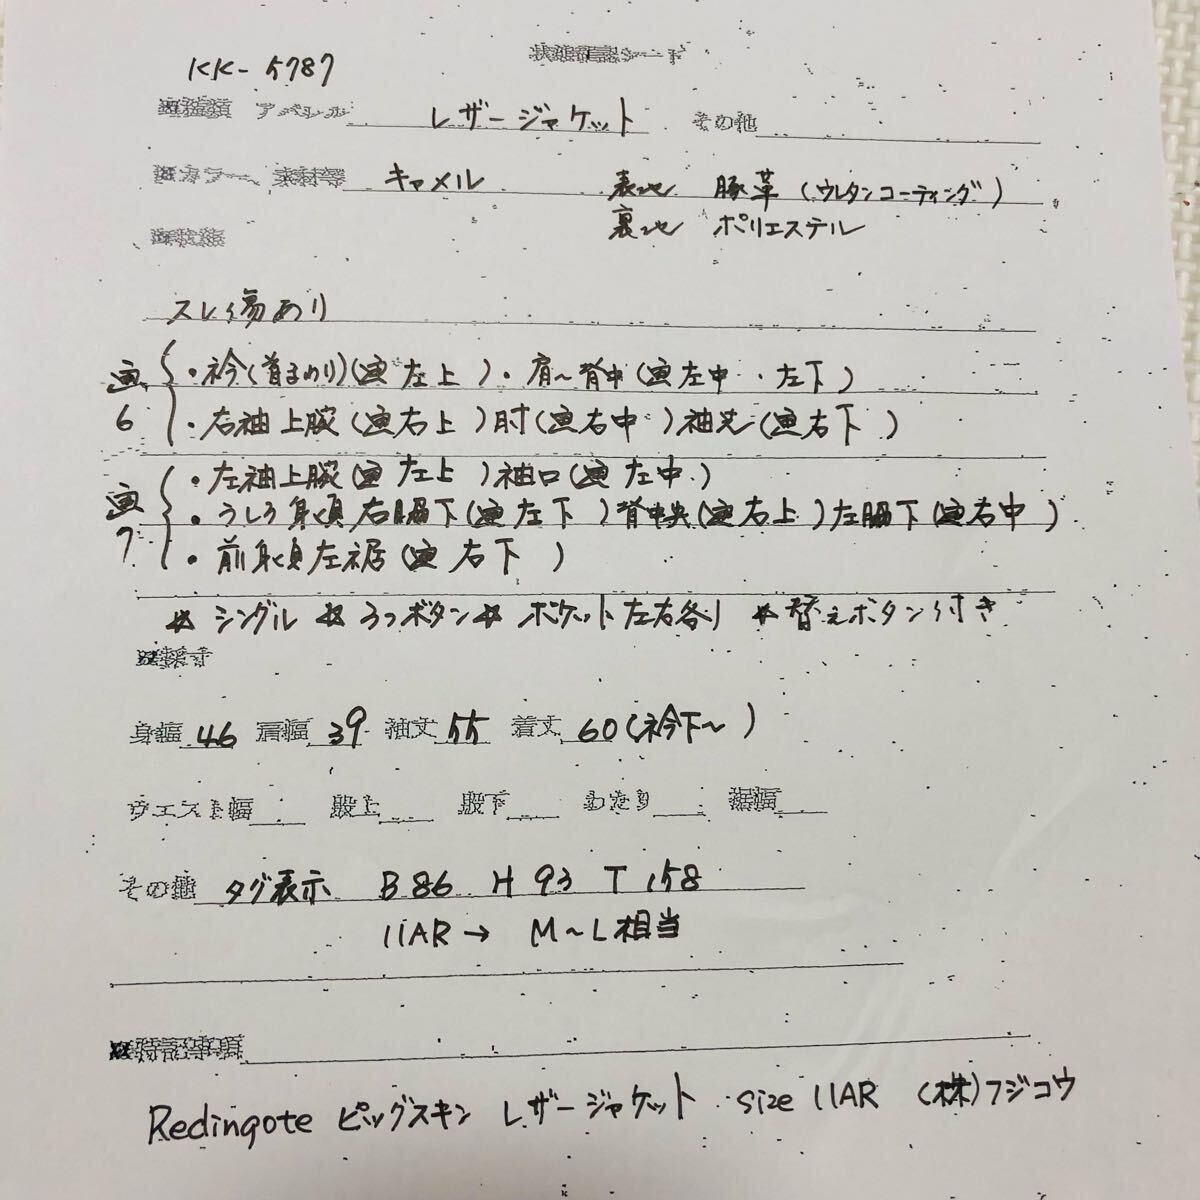 状態確認シート
KK-5787
※種類 アパレル レザージャケット その他
※カラー、素材等 キャメル 表地 豚革(ウレタンコーティング)
裏地 ポリエステル
※状態
スレ傷あり
画6 ・衿(首まわり)(画左上)・肩〜背中(画左中・左下)
・右袖上腕(画右上)肘(画右中)袖先(画右下)
画7 ・左袖上腕(画左上)袖口(画左中)
・うしろ身頃右脇下(画左下)背中央(画右上)左脇下(画右中)
・前身頃左裾(画右下)
☆シングル ☆3つボタン☆ ポケット左右各1 ☆替えボタン付き
※採寸
身幅 46 肩幅 39 袖丈 55 着丈 60(衿下〜)
ウエスト幅 股上 股下 わたり 裾幅
その他 タグ表示 B86 H93 T158
11AR→ M〜L相当
※特記事項
Redingote ピッグスキン レザージャケット size 11AR (株)フジコウ